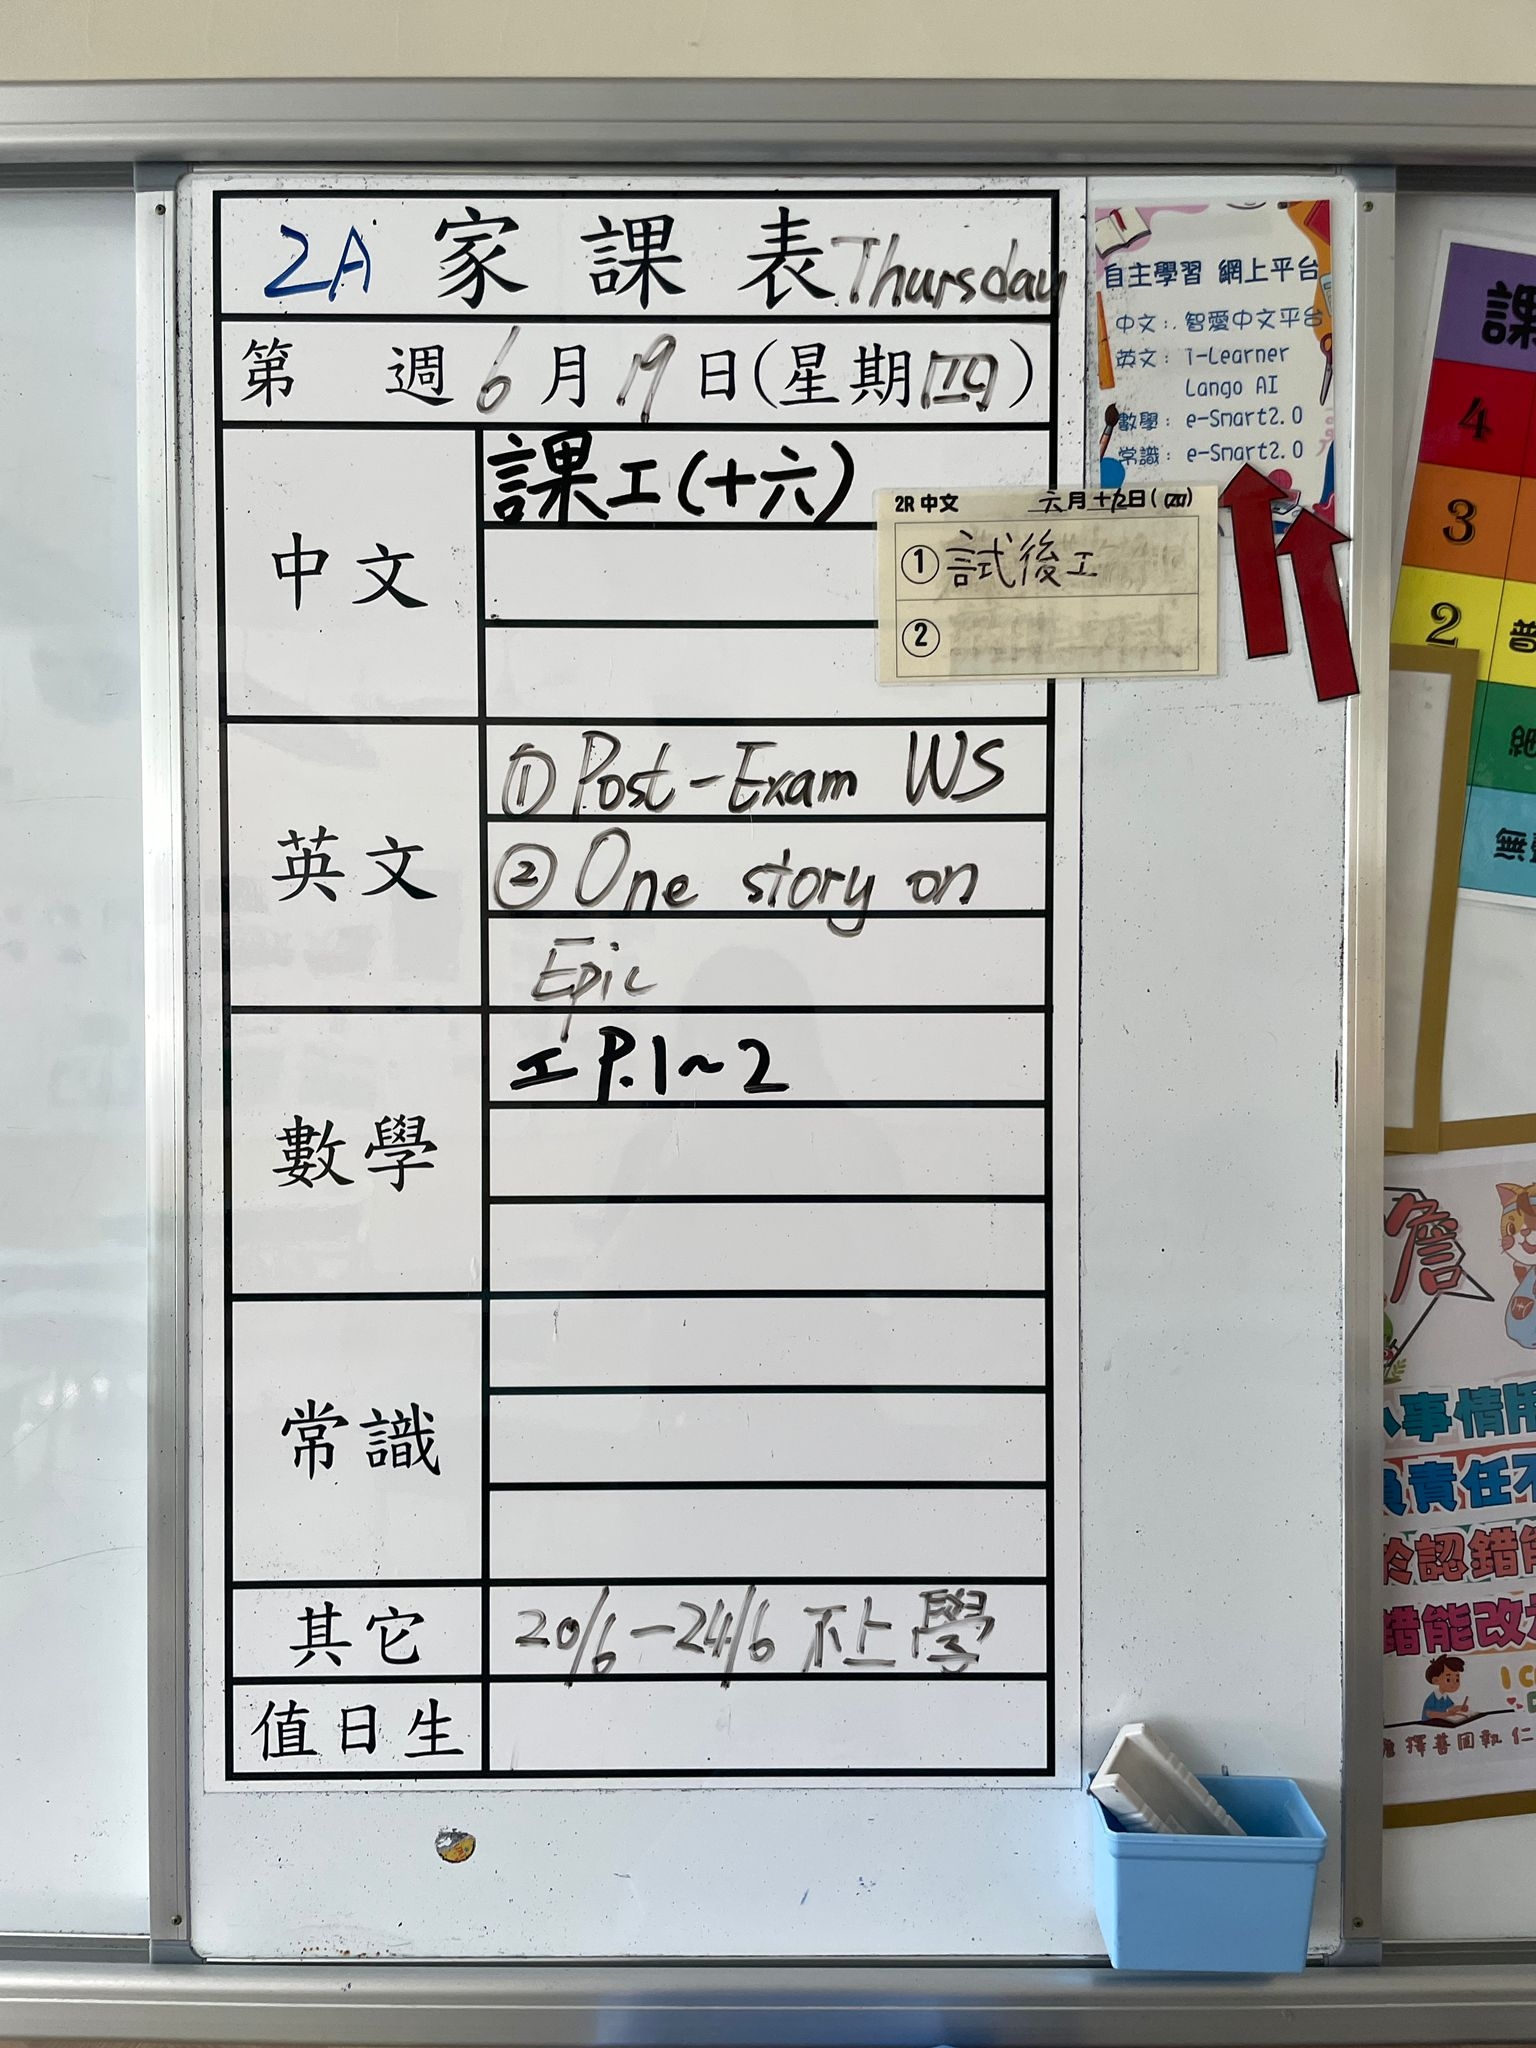 2A 家課表 Thursday
第 週 6月19日(星期四)
中文
課工(十六)
英文
①Post-Exam WS
②One story on
Epic
數學
工P.1~2
常識
其它
20/6-24/6 不上學
值日生
自主學習 網上平台
中文: 智愛中文平台
英文: i-Learner
Lango AI
數學: e-Smart2.0
常識: e-Smart2.0
2R 中文 六月十九日(四)
①試後工
②
課
4
3
2 普
事情
負責任不
認錯能
錯能改
I C
擇善固執 仁